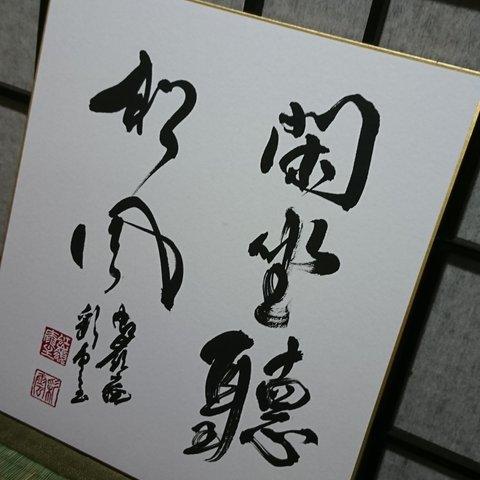 閑坐聽
松風